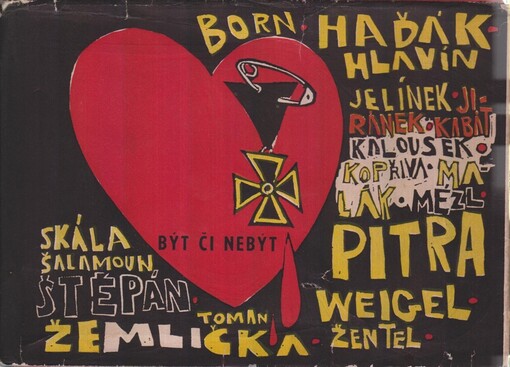 BORN · HAĎÁK ·
HLAVÍN
JELÍNEK · JI-
RÁNEK · KABÁT
KALOUSEK ·
KOPŘIVA · MA-
LÁK · MÉZL ·
PITRA
WEIGEL ·
ŽENTEL ·
BÝT ČI NEBÝT
SKÁLA
ŠALAMOUN
ŠTĚPÁN ·
TOMAN
ŽEMLIČKA ·